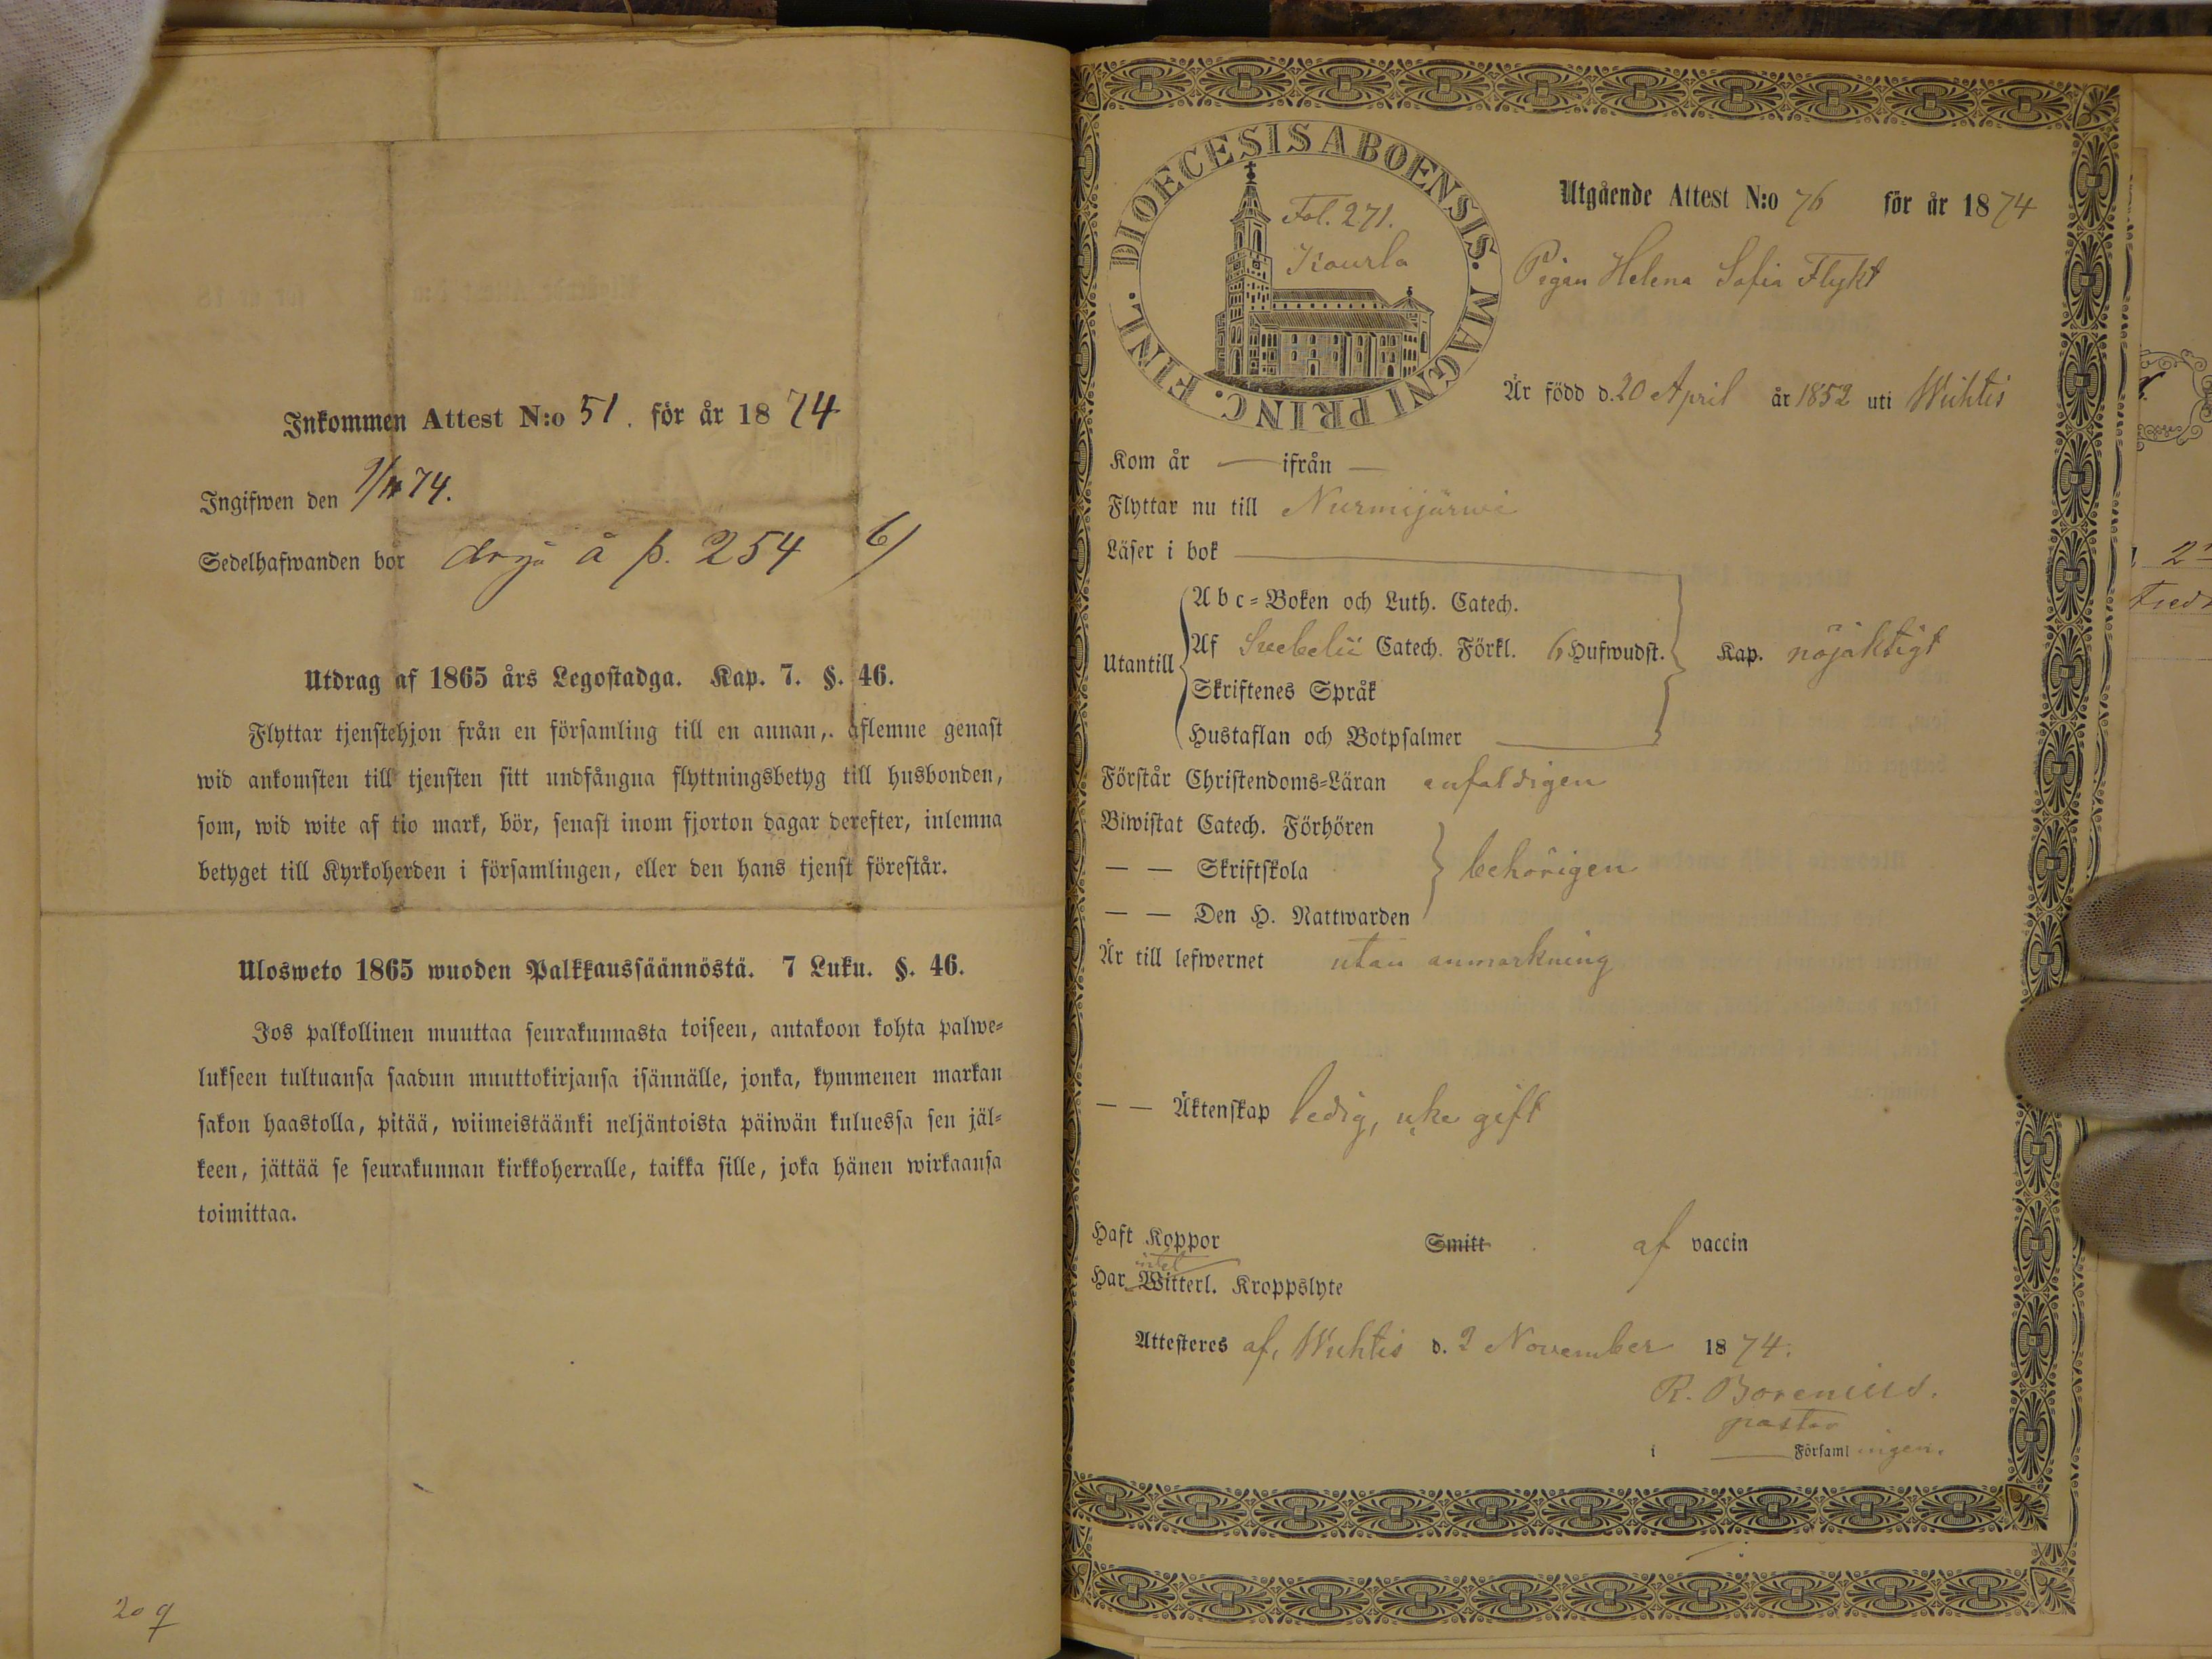 Inkommen Attest N:o 51. för år 1874
Ingifwen den 74.
Sedelhafwanden bor å p. 254 6/
Utdrag af 1865 års Legostadga. Kap. 7. §. 46.
Flyttar tjenstehjon från en församling till en annan,. aflemne genast
wid ankomsten till tjensten sitt undfångna flyttningsbetyg till husbonden,
som, wid wite af tio mark, bör, senast inom fjorton dagar derefter, inlemna
betyget till Kyrkoherden i församlingen, eller den hans tjenst förestår.
Ulosweto 1865 wuoden Palkkaussäännöstä. 7 Luku. §. 46.
Jos palkollinen muuttaa seurakunnasta toiseen, antakoon kohta palwe-
lukseen tultuansa saadun muuttokirjansa isännälle, jonka, kymmenen markan
sakon haastolla, pitää, wiimeistäänki neljäntoista päiwän kuluessa sen jäl-
keen, jättää se seurakunnan kirkkoherralle, taikka sille, joka hänen wirkaansa
toimittaa.
DIOECESIS ABOENSIS. MAGNI PRINC. FINL.
Fol. 271.
Kourla
Utgående Attest N:o 76 för år 1874
Pigan Helena Sofia Flykt
Är född d. 20 April år 1852 uti Wichtis
Kom år — ifrån —
Flyttar nu till Nurmijärwi
Läser i bok
Utantill
Abc-Boken och Luth. Catech.
Af Svebelii Catech. Förkl. 6 Hufwudst. Kap. nöjaktigt
Skriftenes Språk
Hustaflan och Botpsalmer
Förstår Christendoms-Läran enfaldigen
Biwistat Catech. Förhören
— — Skriftskola behörigen
— — Den H. Nattwarden
Är till lefwernet utan anmärkning
— — Äktenskap ledig, icke gift
Haft Koppor Smitt af vaccin
intet
Har Witterl. Kroppslyte
Attesteres af, Wichtis d. 2 November 1874.
R. Borenius.
pastor
i Församlingen.